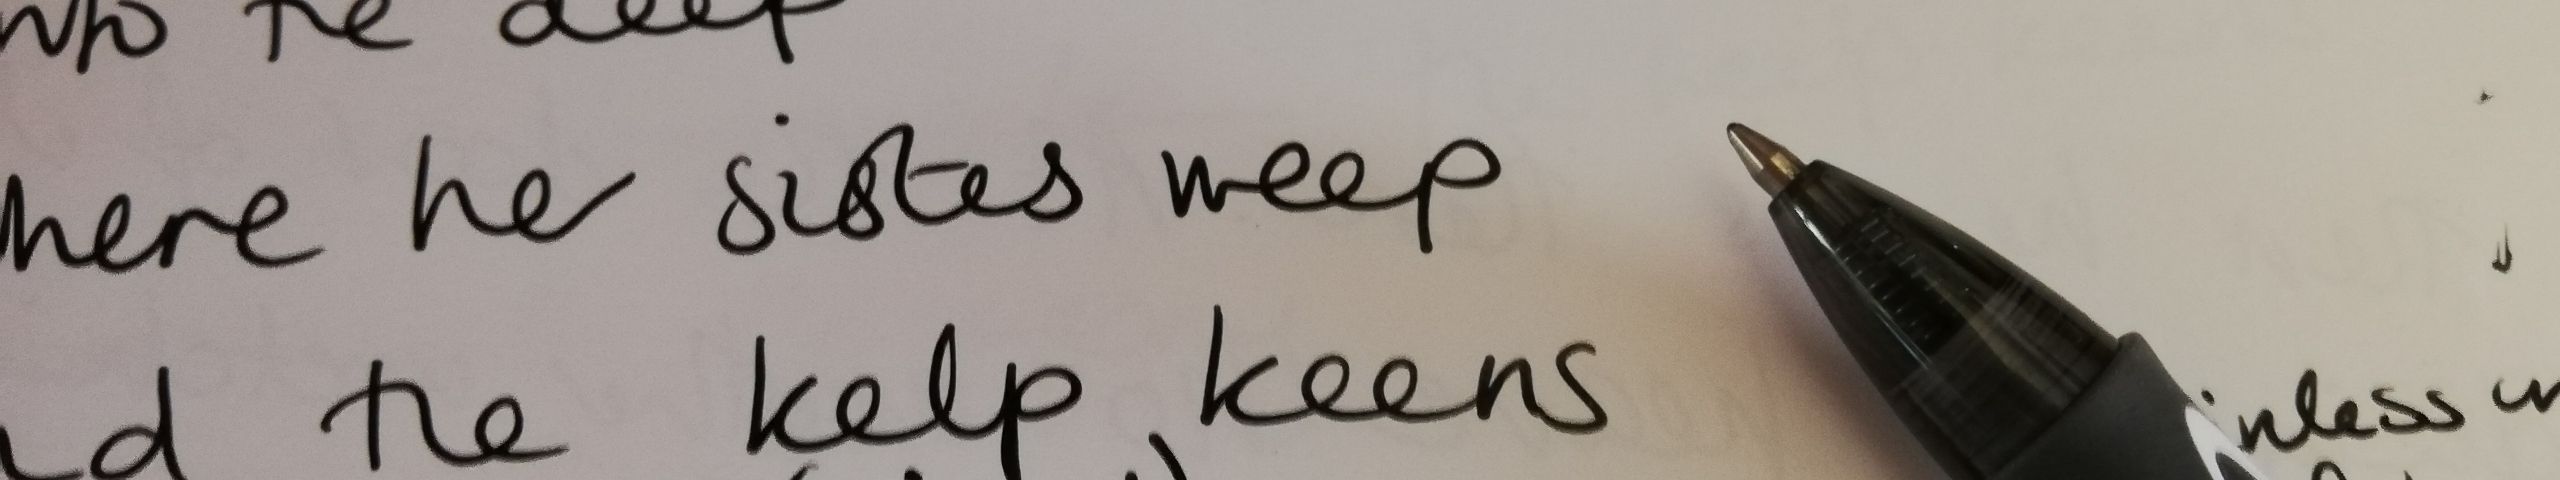 into the deep
where her sisters weep
and the kelp keens
inless